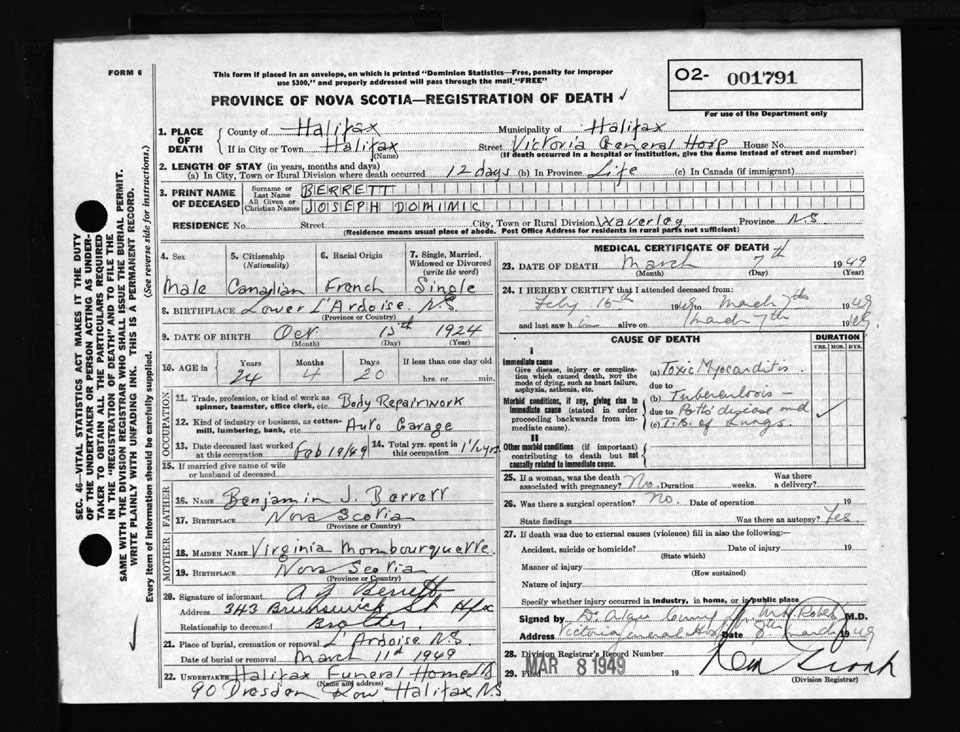 FORM 6
This form if placed in an envelope, on which is printed "Dominion Statistics—Free, penalty for improper
use $300," and properly addressed will pass through the mail "FREE"
PROVINCE OF NOVA SCOTIA—REGISTRATION OF DEATH
O2- 001791
For use of the Department only
SEC. 46—VITAL STATISTICS ACT MAKES IT THE DUTY
OF THE UNDERTAKER OR PERSON ACTING AS UNDER-
TAKER TO OBTAIN ALL THE PARTICULARS REQUIRED
IN THE "REGISTRATION OF DEATH" AND TO FILE THE
SAME WITH THE DIVISION REGISTRAR WHO SHALL ISSUE THE BURIAL PERMIT.
WRITE PLAINLY WITH UNFADING INK. THIS IS A PERMANENT RECORD.
Every item of information should be carefully supplied. (See reverse side for instructions.)
1. PLACE OF DEATH County of Halifax Municipality of Halifax
If in City or Town Halifax Street Victoria General Hosp House No.
(Name) (If death occurred in a hospital or institution, give the name instead of street and number)
2. LENGTH OF STAY (in years, months and days)
(a) In City, Town or Rural Division where death occurred 12 days (b) In Province Life (c) In Canada (if immigrant)
3. PRINT NAME OF DECEASED Surname or Last Name BERRETT
All Given or Christian Names JOSEPH DOMIMIC
RESIDENCE No. Street City, Town or Rural Division Waverley Province N.S
(Residence means usual place of abode. Post Office Address for residents in rural parts not sufficient)
4. Sex 5. Citizenship (Nationality) 6. Racial Origin 7. Single, Married, Widowed or Divorced (write the word)
Male Canadian French Single
8. BIRTHPLACE Lower L'Ardoise, N.S
(Province or Country)
9. DATE OF BIRTH Oct 15th 1924
(Month) (Day) (Year)
10. AGE IN Years Months Days If less than one day old
24 4 20 hrs. or min.
OCCUPATION
11. Trade, profession, or kind of work as
spinner, teamster, office clerk, etc. Body Repairwork
12. Kind of industry or business, as cotton-
mill, lumbering, bank, etc. Auto Garage
13. Date deceased last worked at this occupation Feb 19/49 14. Total yrs. spent in this occupation 1½ yrs.
15. If married give name of wife
or husband of deceased
FATHER
16. NAME Benjamin J. Berrett
17. BIRTHPLACE Nova Scotia
(Province or Country)
MOTHER
18. MAIDEN NAME Virginia Mombourquette
19. BIRTHPLACE Nova Scotia
(Province or Country)
20. Signature of informant A J Berrett
Address 343 Brunswick St Hfx
Relationship to deceased Brother
21. Place of burial, cremation or removal L'Ardoise N.S
Date of burial or removal March 11th 1949
22. UNDERTAKER Halifax Funeral Home
(Name and address)
90 Dresden Row Halifax NS
MEDICAL CERTIFICATE OF DEATH
23. DATE OF DEATH March 7th 1949
(Month) (Day) (Year)
24. I HEREBY CERTIFY that I attended deceased from:
Feby 15th 1949 to March 7th 1949
and last saw him alive on March 7th 1949
CAUSE OF DEATH DURATION
YRS. MOS. DYS.
I
Immediate cause
Give disease, injury or complica-
tion which caused death, NOT the
mode of dying, such as heart failure,
asphyxia, asthenia, etc.
(a) Toxic Myocarditis
due to
Morbid conditions, if any, giving rise to
immediate cause (stated in order
proceeding backwards from im-
mediate cause).
(b) Tuberculosis —
due to Potts disease and
(c) T.B. of Lungs.
II
Other morbid conditions (if important)
contributing to death but not
causally related to immediate cause.
25. If a woman, was the death associated with pregnancy? No. Duration weeks. Was there a delivery?
26. Was there a surgical operation? No. Date of operation 19
State findings Was there an autopsy? Yes.
27. If death was due to external causes (violence) fill in also the following:—
Accident, suicide or homicide? Date of injury 19
(State which)
Manner of injury
(How sustained)
Nature of injury
Specify whether injury occurred in industry, in home, or in public place
Signed by M.D.
Address Victoria General Hosp Date 8th March 1949
28. Division Registrar's Record Number
29. Filed MAR 8 1949 19
(Division Registrar)